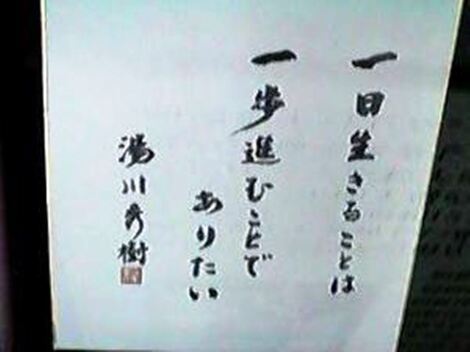 一日生きることは
一歩進むことで
ありたい
湯川秀樹